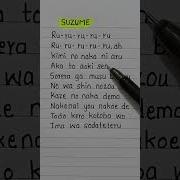 SUZUME
Ru-ru-ru-ru-ru
Ru-ru-ru-ru-ru,ah
Kimi no naka ni aru
Aka to aoki sen
Sorera ga musu b
No wa shin nozou
Kaze no naka demo
Nakenai you nakoe de
Todo kero kotoba wo
Ima wa sodateteru